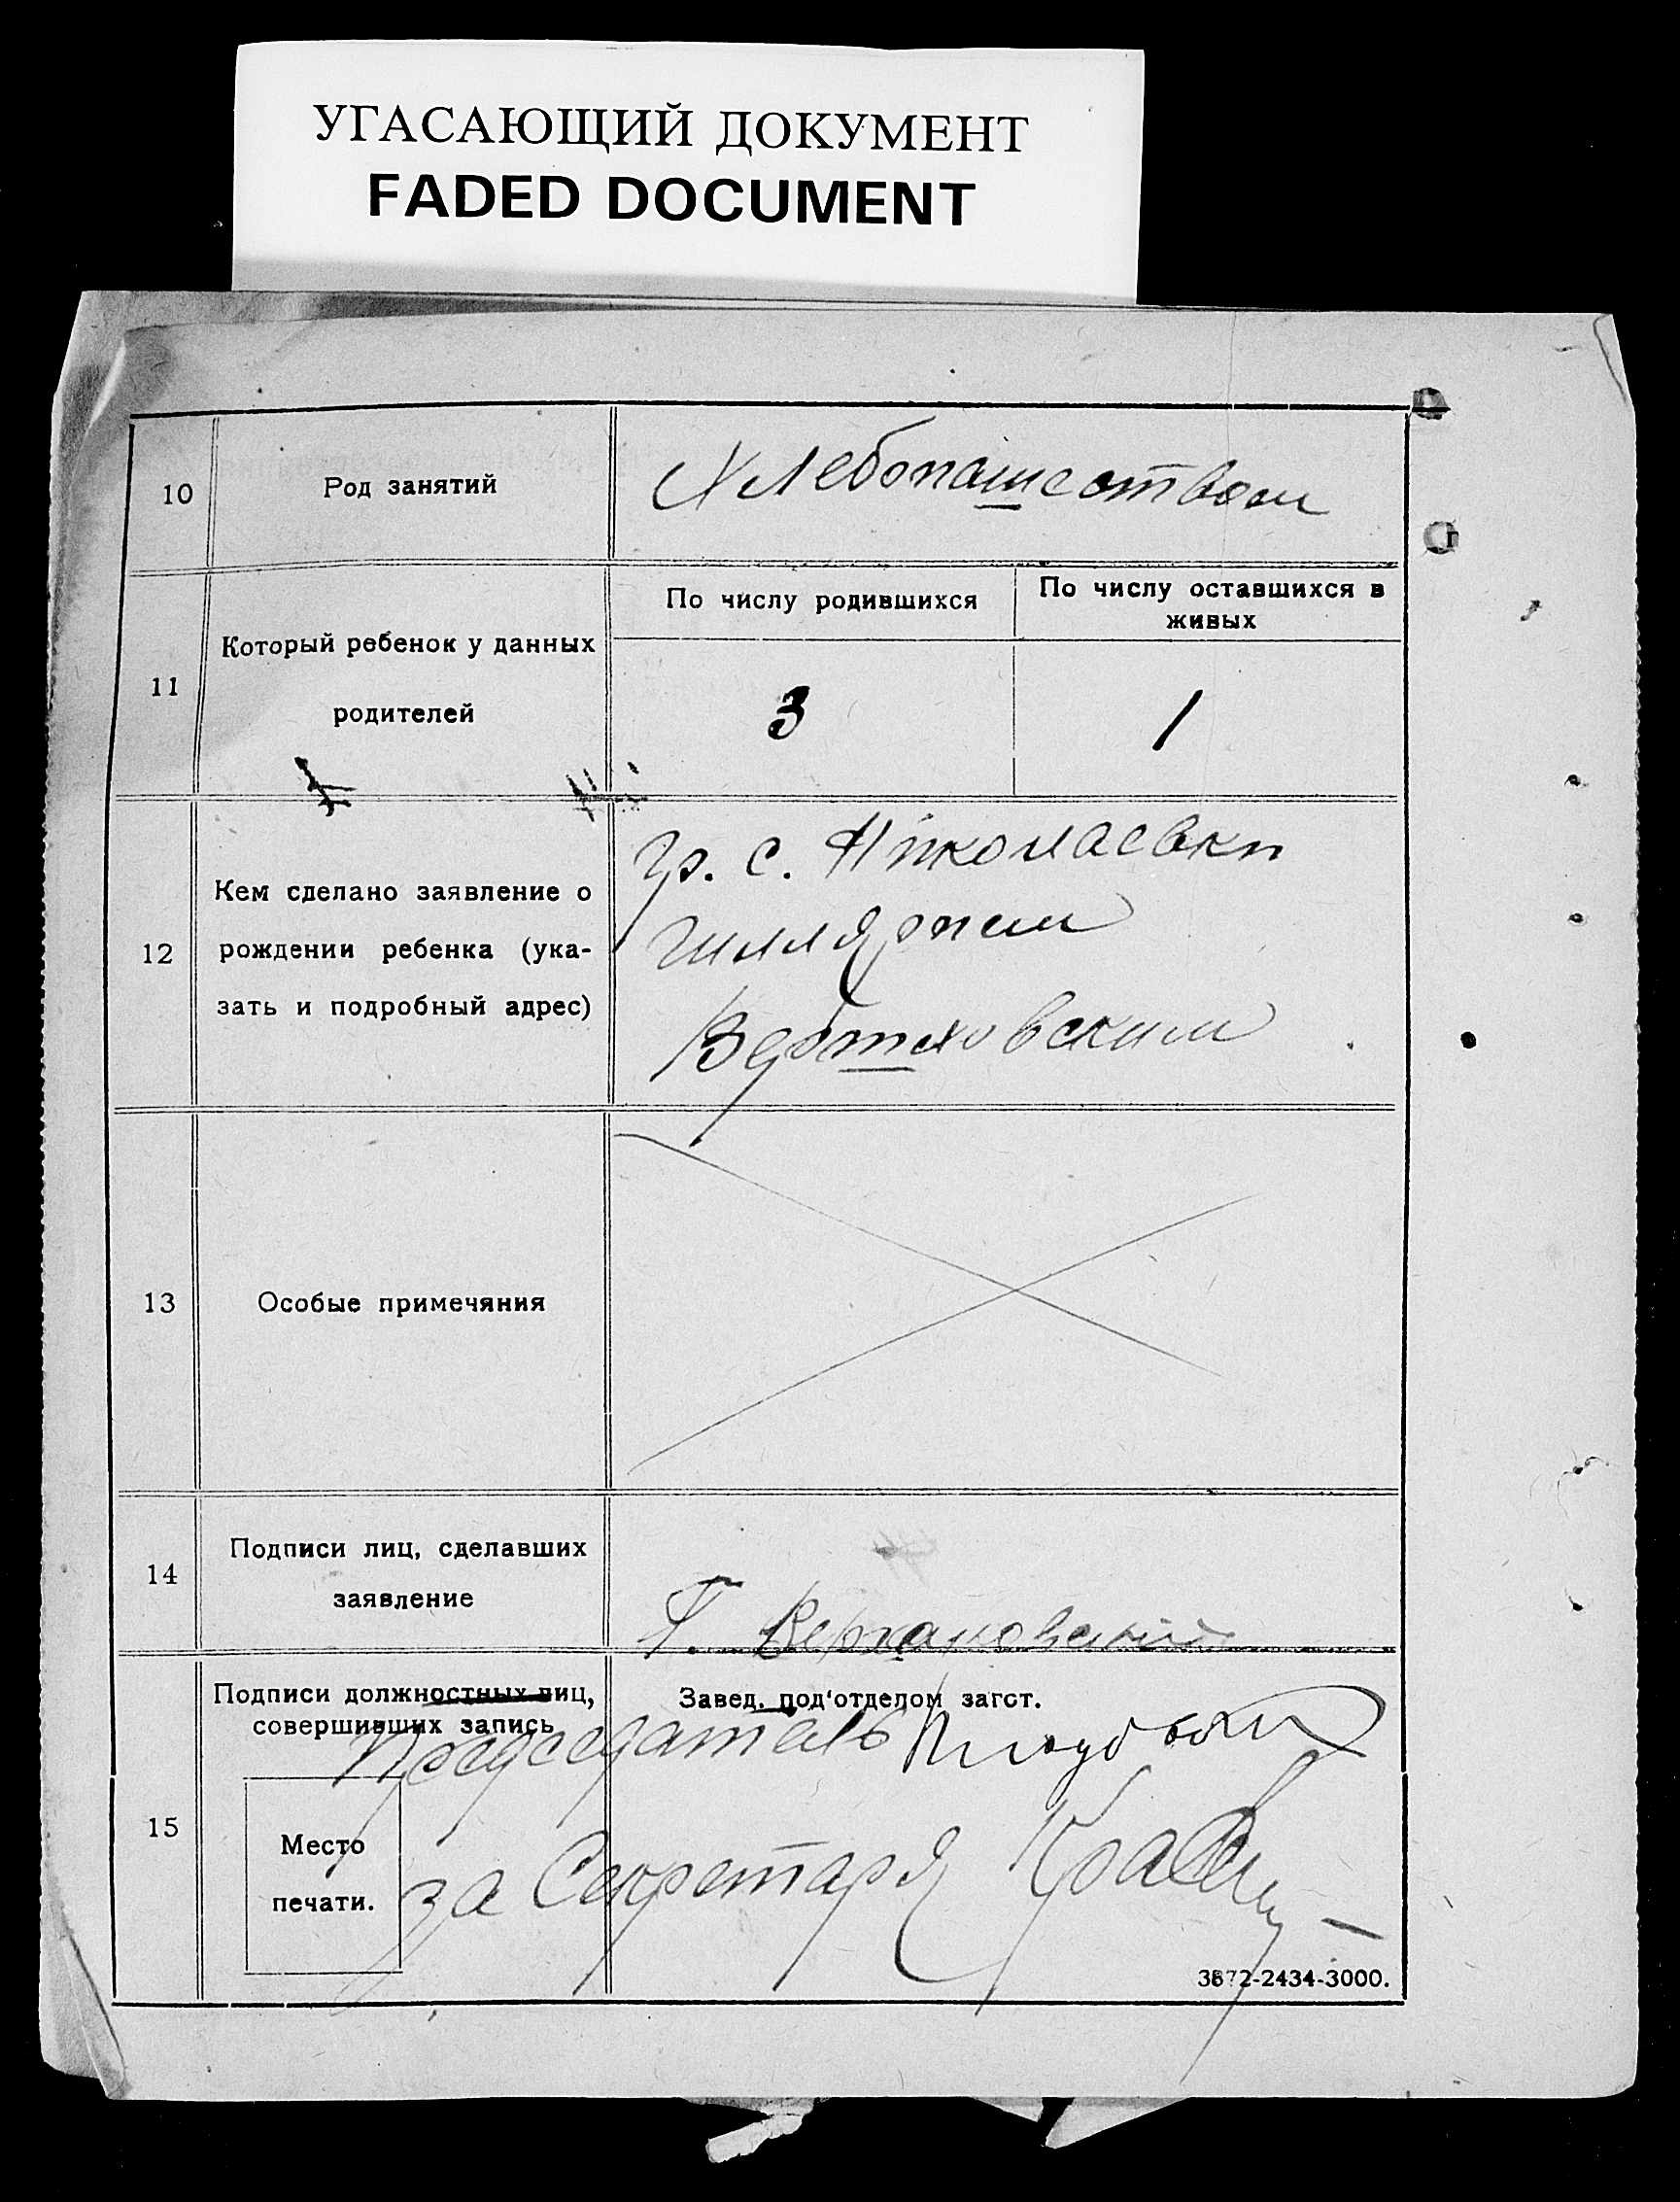 УГАСАЮЩИЙ ДОКУМЕНТ
FADED DOCUMENT
10
Род занятий
Хлебопашеством
11
Который ребенок у данных
родителей
По числу родившихся
По числу оставшихся в
живых
3
1
12
Кем сделано заявление о
рождении ребенка (ука-
зать и подробный адрес)
Гр. с. Николаевки
13
Особые примечяния
14
Подписи лиц, сделавших
заявление
Г.
15
Подписи должностных лиц,
совершивших запись
Завед. под'отделом загст.
Председатель
Место
печати.
за Секретаря
3872-2434-3000.